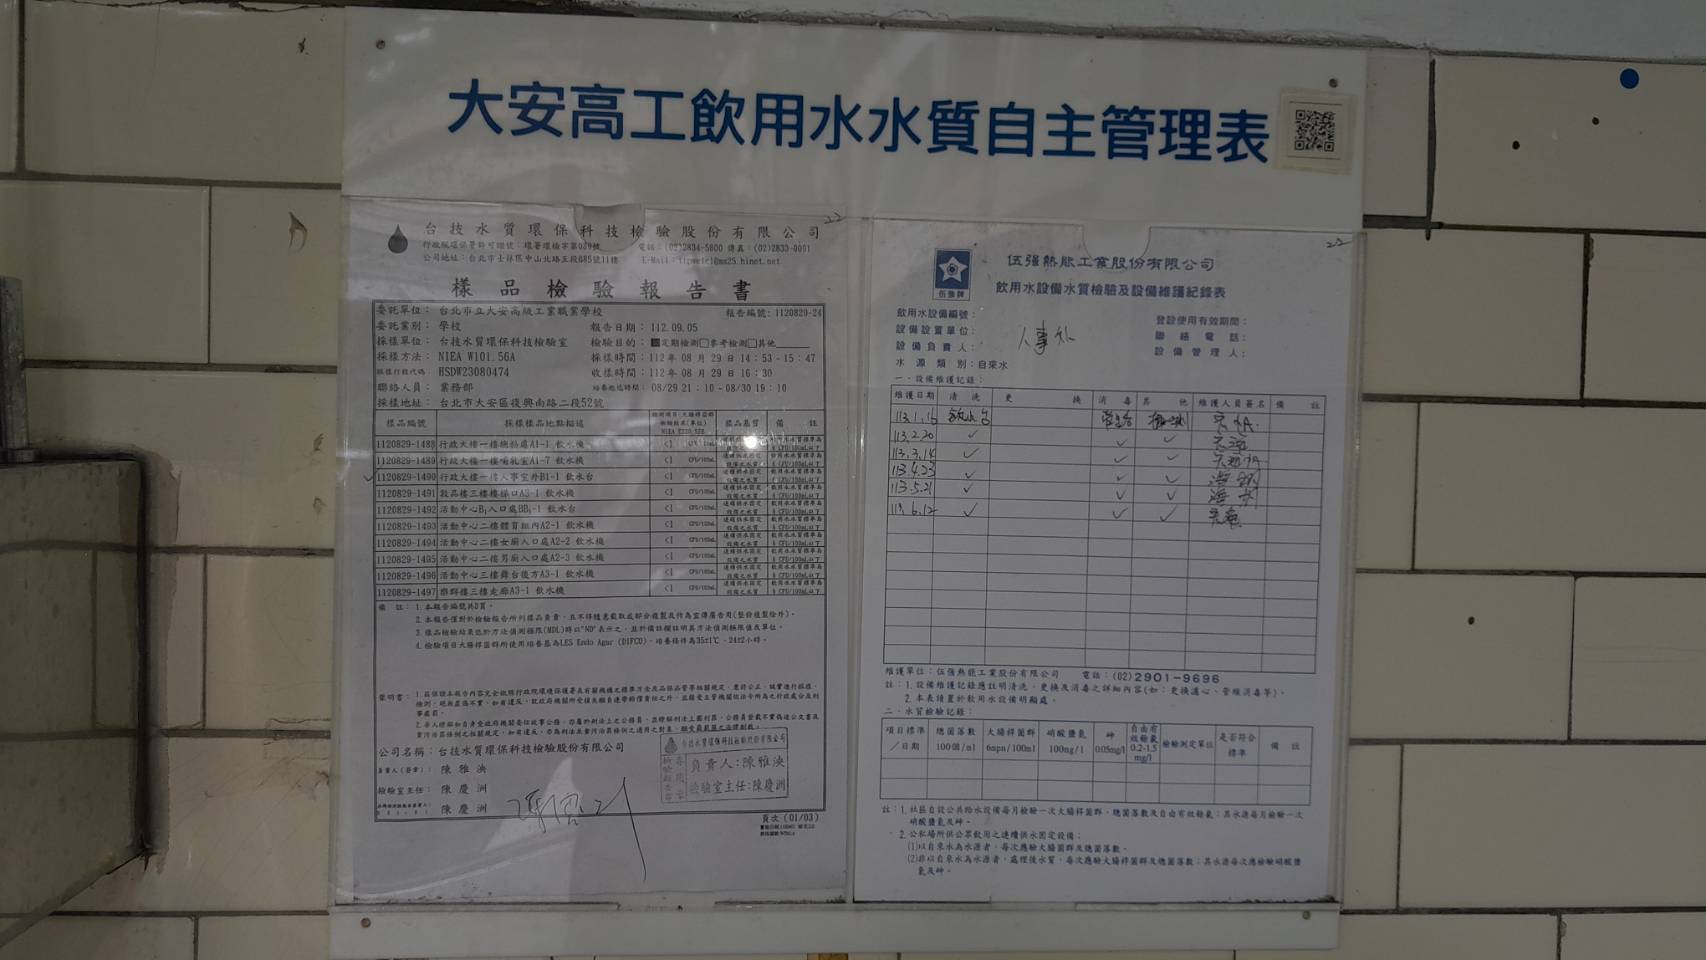 大安高工飲用水水質自主管理表
22
台技水質環保科技檢驗股份有限公司
行政院環保署許可證號：環署環檢字第089號 電話：(02)2834-5800 傳真：(02)2833-0001
公司地址：台北市士林區中山北路五段685號11樓
樣品檢驗報告書
委託單位： 台北市立大安高級工業職業學校 報告編號：1120829-24
委託業別： 學校 報告日期：112.09.05
採樣單位： 台技水質環保科技檢驗室 檢驗目的：■定期檢測□參考檢測□其他
採樣方法： NIEA W101.56A 採樣時間：112年08月29日14：53-15：47
採樣行程代碼： HSDW23080474 收樣時間：112年08月29日16：30
聯絡人員： 業務部 培養起迄時間：08/29 21：10-08/30 19：10
採樣地址： 台北市大安區復興南路二段52號
樣品編號 採樣樣品地點描述 樣品基質 備註
1120829-1488 行政大樓一樓 A1-1 飲水機 <1
1120829-1489 行政大樓一樓哺乳室A1-7 飲水機 <1
1120829-1490 行政大樓一樓人事室外B1-1 飲水台 <1
1120829-1491 敦品樓三樓樓梯口A3-1 飲水機 <1
1120829-1492 活動中心B1入口處BB1-1 飲水台 <1
1120829-1493 活動中心二樓體育組內A2-1 飲水機 <1
1120829-1494 活動中心二樓女廁入口處A2-2 飲水機 <1
1120829-1495 活動中心二樓男廁入口處A2-3 飲水機 <1
1120829-1496 活動中心三樓舞台後方A3-1 飲水機 <1
1120829-1497 樂群樓三樓走廊A3-1 飲水機 <1
備 註：1.本報告編號共3頁。
2.本報告僅對於檢驗報告所列樣品負責，且不得隨意截取或部分複製及作為宣傳廣告用(整份複製除外)。
3.樣品檢驗結果低於方法偵測極限(MDL)時以"ND"表示之，並於備註欄註明其方法偵測極限值及單位。
4.檢驗項目大腸桿菌群所使用培養基為LES Endo Agar (DIFCO)，培養條件為35±1℃、24±2小時。
聲明書：
公司名稱：台技水質環保科技檢驗股份有限公司
負責人(簽章)： 陳雅泱
檢驗室主任： 陳慶洲
陳慶洲
台技水質環保科技檢驗股份有限公司
負責人：陳雅泱
檢驗室主任：陳慶洲
頁次(01/03)
22
伍強牌
伍強熱能工業股份有限公司
飲用水設備水質檢驗及設備維護紀錄表
飲用水設備編號： 登錄使用有效期間：
設備設置單位： 人事外 聯絡電話：
設備負責人： 設備管理人：
水源類別：自來水
一、設備維護記錄：
維護日期 清洗 更換 消毒 其他 維護人員簽名 備註
113.1.16
113.2.20 ✓ ✓ ✓
113.3.14 ✓ ✓ ✓
113.4.23 ✓ ✓ ✓
113.5.21 ✓ ✓ ✓
113.6.12 ✓ ✓ ✓
維護單位：伍強熱能工業股份有限公司 電話：(02)2901-9696
註：1.設備維護記錄應註明清洗、更換及消毒之詳細內容(如：更換濾心、管線消毒等)。
2.本表請置於飲用水設備明顯處。
二、水質檢驗記錄：
項目標準／日期 總菌落數 100個/ml 大腸桿菌群 6mpn/100ml 硝酸鹽氮 100ng/l 砷 0.05mg/l 自由有效餘氯 0.2-1.5 mg/l 檢驗測定單位 是否符合標準 備註
註：1.社區自設公共給水設備每月檢驗一次大腸桿菌群、總菌落數及自由有效餘氯；其水源每月檢驗一次
硝酸鹽氮及砷。
2.公私場所供公眾飲用之連續供水固定設備：
(1)以自來水為水源者，每次應驗大腸桿菌群及總菌落數。
(2)非以自來水為水源者，處理後水質，每次應驗大腸桿菌群及總菌落數；其水源每次應檢驗硝酸鹽
氮及砷。